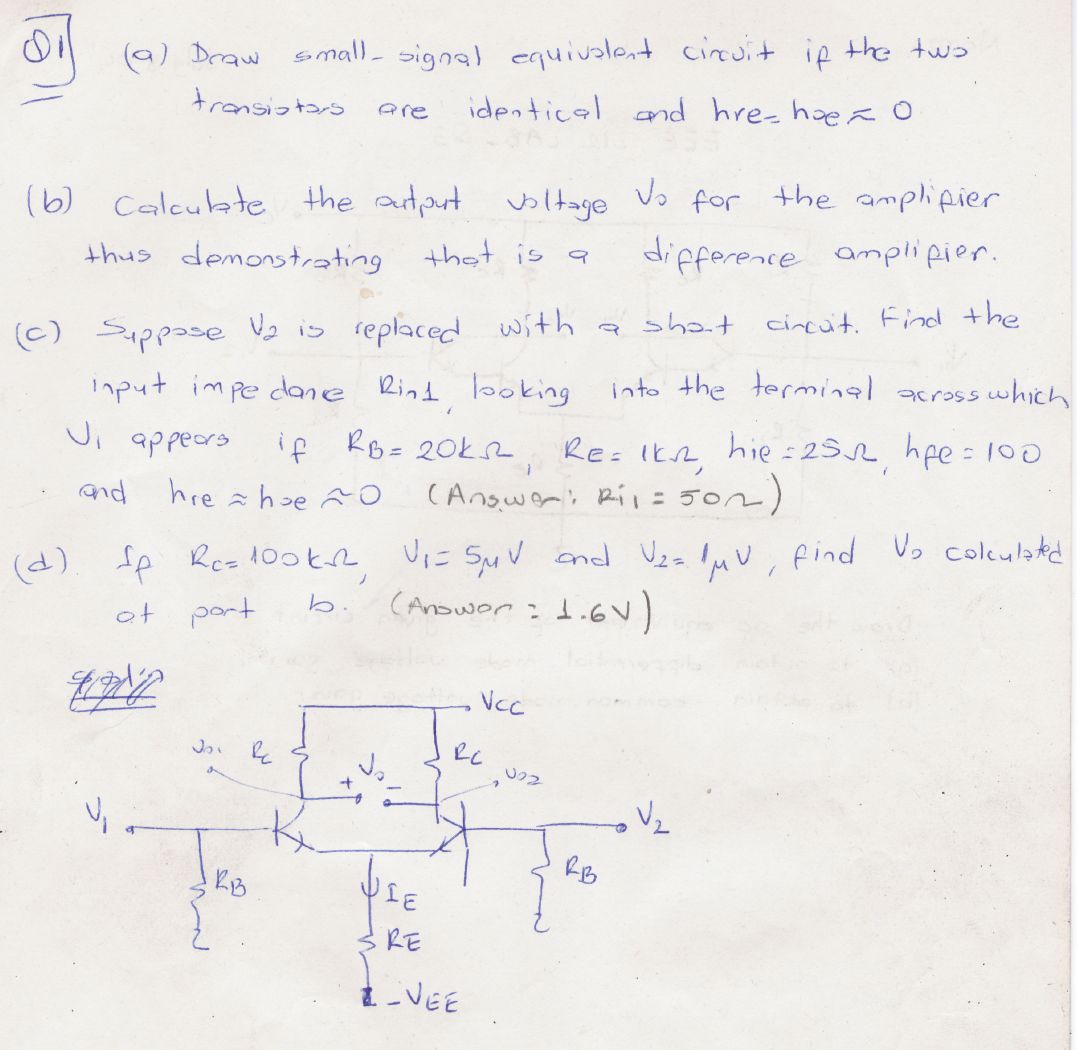 Q1 (a) Draw small-signal equivalent circuit if the two
transistors are identical and hre=hoe≈0
(b) Calculate the output voltage Vo for the amplifier
thus demonstrating that is a difference amplifier.
(c) Suppose V2 is replaced with a short circuit. Find the
input impedance Rin1, looking into the terminal across which
V1 appears if RB=20kΩ, RE=1kΩ, hie=25Ω, hfe=100
and hre≈hoe≈0 (Answer: Ri1=50Ω)
(d) If Rc=100kΩ, V1=5μV and V2=1μV, find Vo calculated
at part b. (Answer = 1.6V)
VCC
Vo1 RC + Vo - RC Vo2
V1 V2
RB IE RB
RE
-VEE